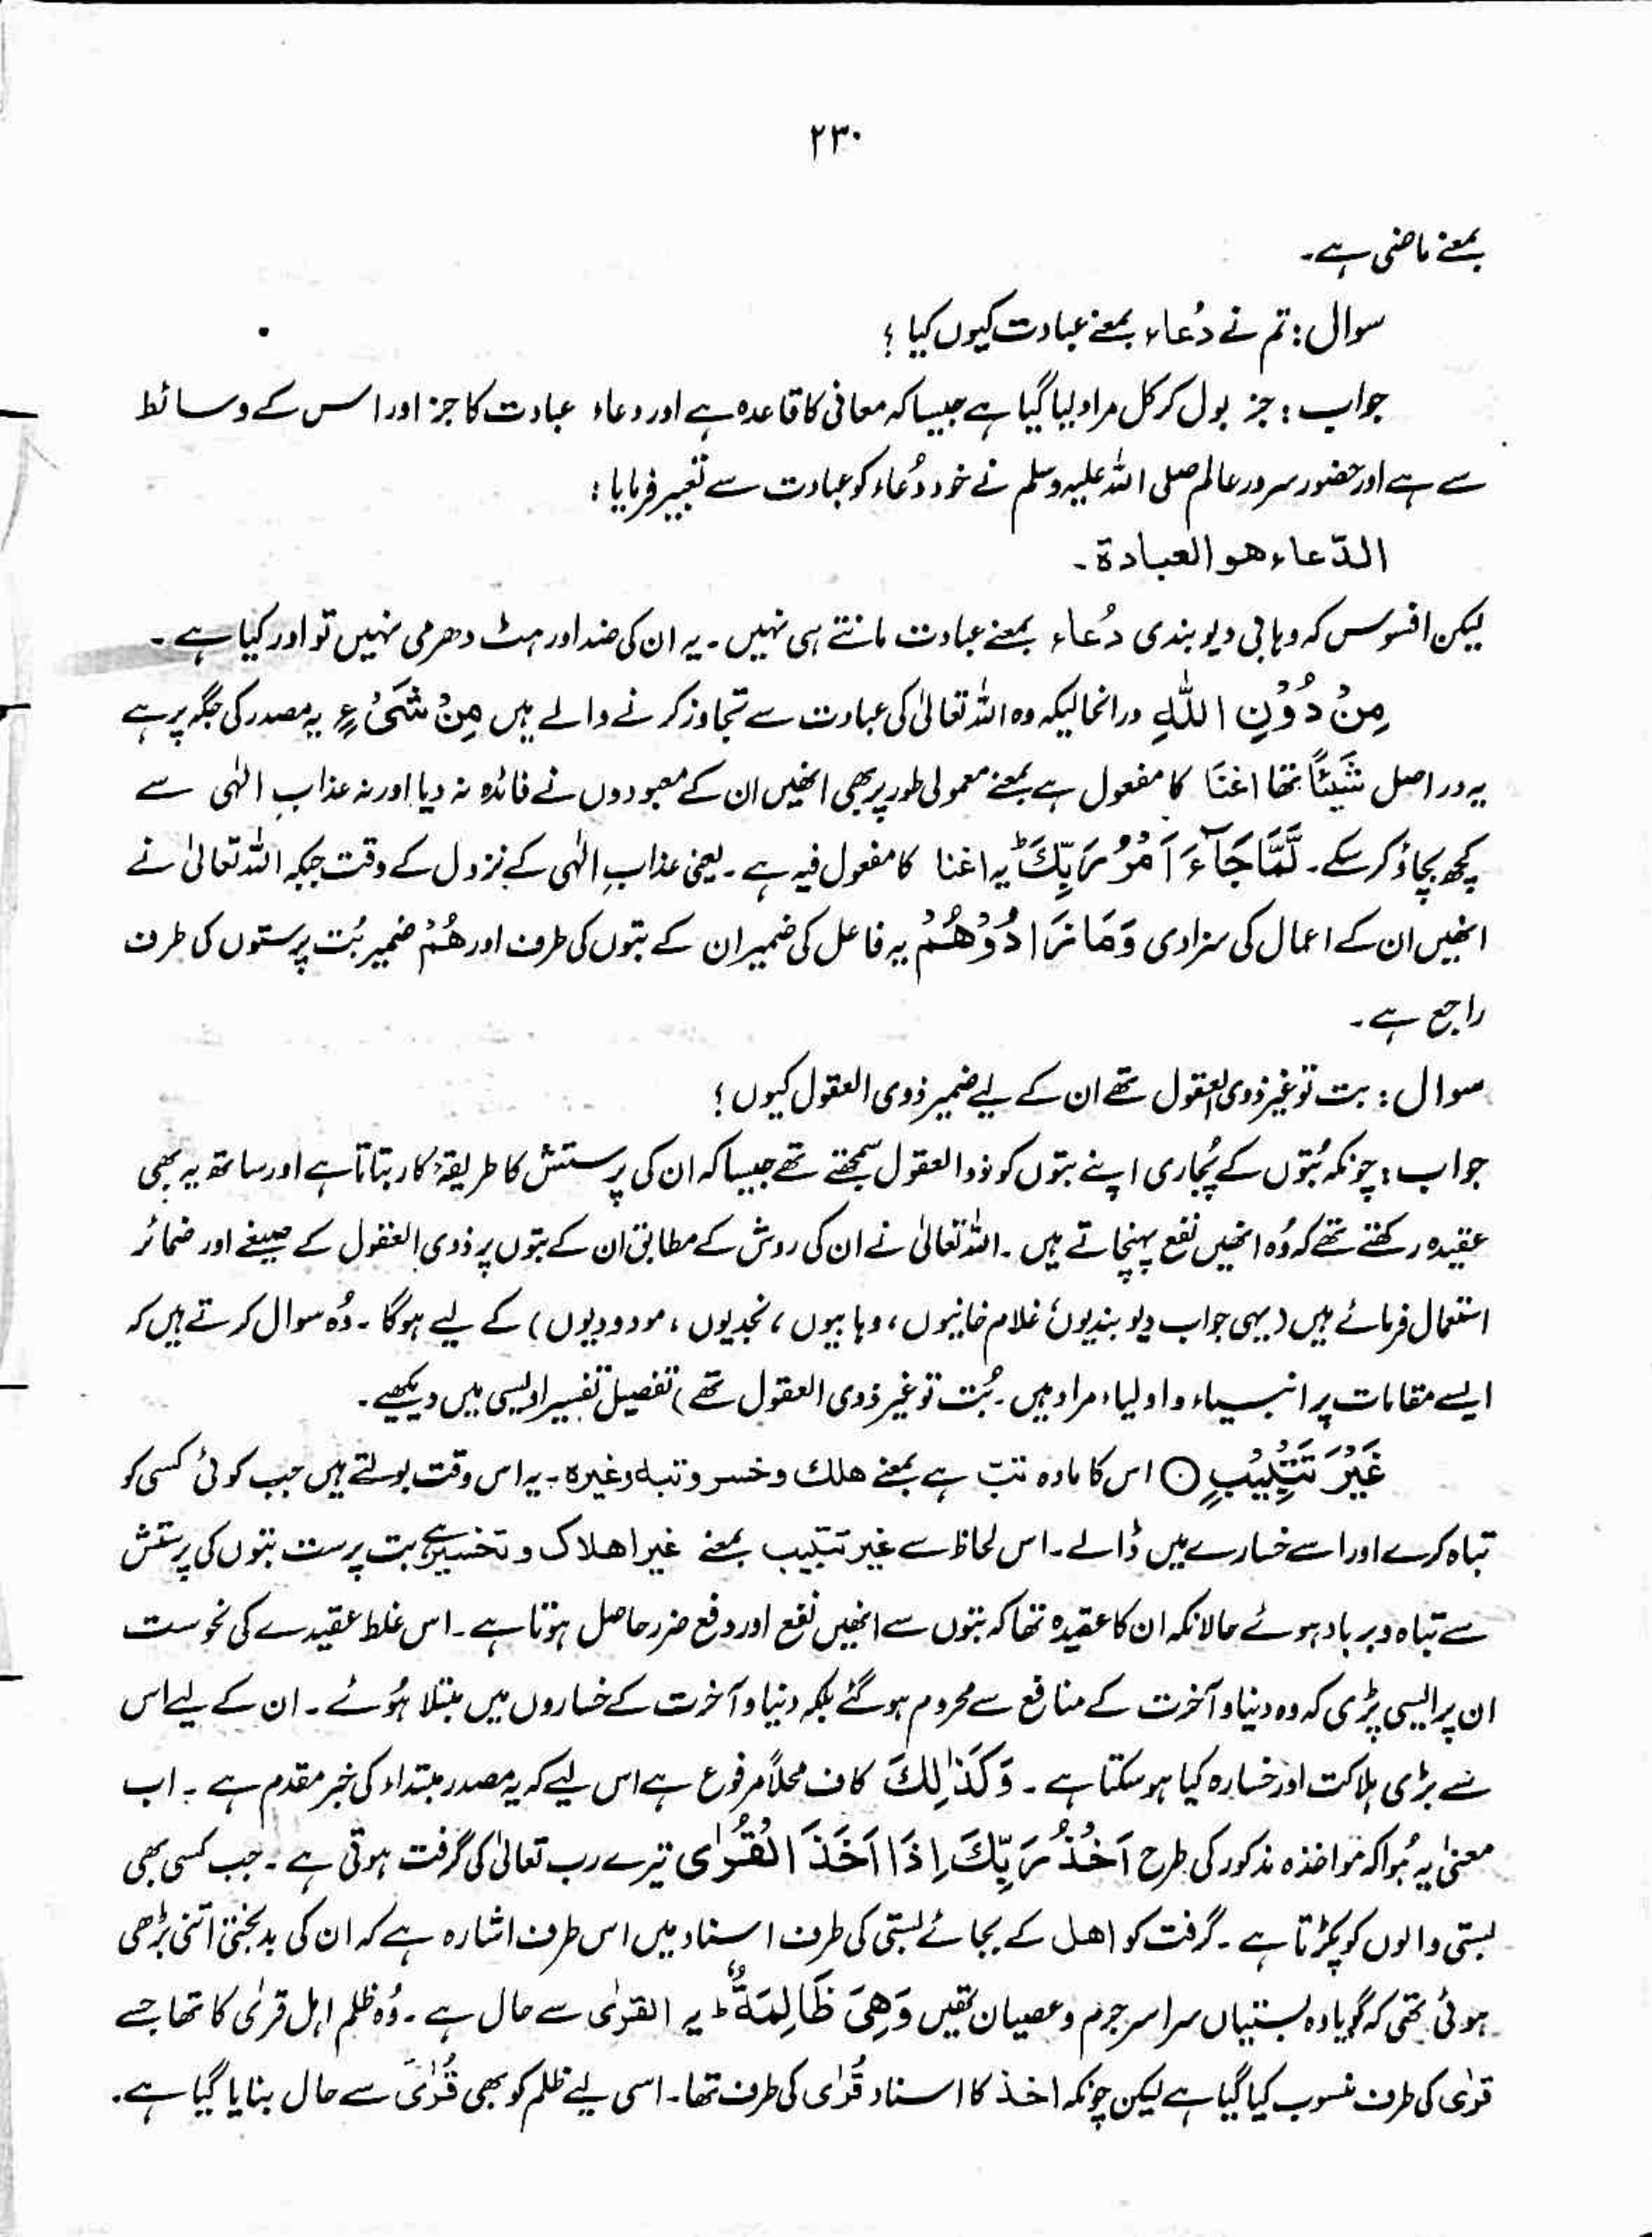 ۲۳۰
بمعنے ماضی ہے۔
سوال : تم نے دُعاء بمعنے عبادت کیوں کیا ؟
جواب : جز بول کر کل مراد لیا گیا ہے جیسا کہ معانی کا قاعدہ ہے اور دعاء عبادت کا جز اور اس کے وسائط
سے ہے اور حضور سرور عالم صلی اللہ علیہ وسلم نے خود دُعاء کو عبادت سے تعبیر فرمایا :
الدّعاء هو العبادة ۔
لیکن افسوس کہ وہابی دیوبندی دُعاء بمعنے عبادت مانتے ہی نہیں ۔ یہ ان کی ضد اور ہٹ دھرمی نہیں تو اور کیا ہے ۔
مِنْ دُوْنِ اللّٰهِ درانحالیکہ وہ اللہ تعالیٰ کی عبادت سے تجاوز کرنے والے ہیں مِنْ شَیْءٍ یہ مصدر کی جگہ پر ہے
یہ دراصل شَیْئًا تھا اغنَا کا مفعول ہے بمعنے معمولی طور پر بھی انھیں ان کے معبودوں نے فائدہ نہ دیا اور نہ عذابِ الٰہی سے
کچھ بچاؤ کر سکے ۔ لَّمَّا جَآءَ اَمْرُ رَبِّكَ ؕ یہ اغنا کا مفعول فیہ ہے ۔ یعنی عذابِ الٰہی کے نزول کے وقت جبکہ اللہ تعالیٰ نے
انھیں ان کے اعمال کی سزا دی وَمَا زَادُوْهُمْ یہ فاعل کی ضمیر ان کے بتوں کی طرف اور هُمْ ضمیر بُت پرستوں کی طرف
راجع ہے ۔
سوال : بت تو غیر ذوی العقول تھے ان کے لیے ضمیر ذوی العقول کیوں ؟
جواب : چونکہ بُتوں کے پُجاری اپنے بتوں کو ذوالعقول سمجھتے تھے جیسا کہ ان کی پرستش کا طریقۂ کار بتاتا ہے اور ساتھ یہ بھی
عقیدہ رکھتے تھے کہ وُہ انھیں نفع پہنچاتے ہیں ۔ اللہ تعالیٰ نے ان کی روش کے مطابق ان کے بتوں پر ذوی العقول کے صیغے اور ضمائر
استعمال فرمائے ہیں (یہی جواب دیوبندیوں، غلام خانیوں، وہابیوں، نجدیوں، مودودیوں) کے لیے ہوگا ۔ وُہ سوال کرتے ہیں کہ
ایسے مقامات پر انبیاء و اولیاء مراد ہیں ۔ بُت تو غیر ذوی العقول تھے) تفصیل تفسیر اویسی میں دیکھیے ۔
غَيْرَ تَتْبِيْبٍ ○ اس کا مادہ تبّ ہے بمعنے هلك و خسر و تبه وغیرہ ۔ یہ اس وقت بولتے ہیں جب کوئی کسی کو
تباہ کرے اور اسے خسارے میں ڈالے ۔ اس لحاظ سے غیر تتبیب بمعنے غیر اهلاک و تخسیر ہے بت پرست بتوں کی پرستش
سے تباہ و برباد ہوئے حالانکہ ان کا عقیدہ تھا کہ بتوں سے انھیں نفع اور دفع ضرر حاصل ہوتا ہے ۔ اس غلط عقیدے کی نحوست
ان پر ایسی پڑی کہ وہ دنیا و آخرت کے منافع سے محروم ہو گئے بلکہ دنیا و آخرت کے خساروں میں مبتلا ہُوئے ۔ ان کے لیے اس
سے بڑی ہلاکت اور خسارہ کیا ہو سکتا ہے ۔ وَكَذٰلِكَ کاف محلاً مرفوع ہے اس لیے کہ یہ مصدر مبتداء کی خبر مقدم ہے ۔ اب
معنیٰ یہ ہُوا کہ مواخذہ مذکور کی طرح اَخْذُ رَبِّكَ اِذَا اَخَذَ الْقُرٰى تیرے رب تعالیٰ کی گرفت ہوتی ہے ۔ جب کسی بھی
بستی والوں کو پکڑتا ہے ۔ گرفت کو اهل کے بجائے بستی کی طرف اسناد میں اس طرف اشارہ ہے کہ ان کی بدبختی اتنی بڑھی
ہوئی تھی کہ گویا وہ بستیاں سراسر جرم و عصیان تھیں وَهِيَ ظَالِمَةٌ ؕ یہ القرٰی سے حال ہے ۔ وُہ ظلم اہل قرٰی کا تھا جسے
قرٰی کی طرف منسوب کیا گیا ہے لیکن چونکہ اخذ کا اسناد قُرٰی کی طرف تھا ۔ اسی لیے ظلم کو بھی قُرٰی سے حال بنایا گیا ہے ۔